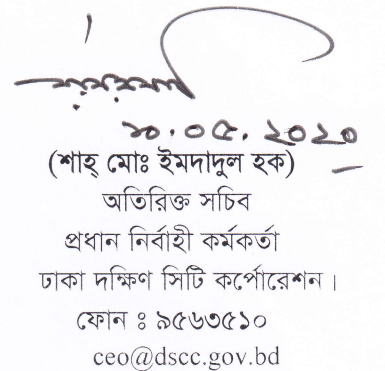 ১০.০৫.২০২০
(শাহ্ মোঃ ইমদাদুল হক)
অতিরিক্ত সচিব
প্রধান নির্বাহী কর্মকর্তা
ঢাকা দক্ষিণ সিটি কর্পোরেশন।
ফোন ঃ ৯৫৬৩৫১০
ceo@dscc.gov.bd